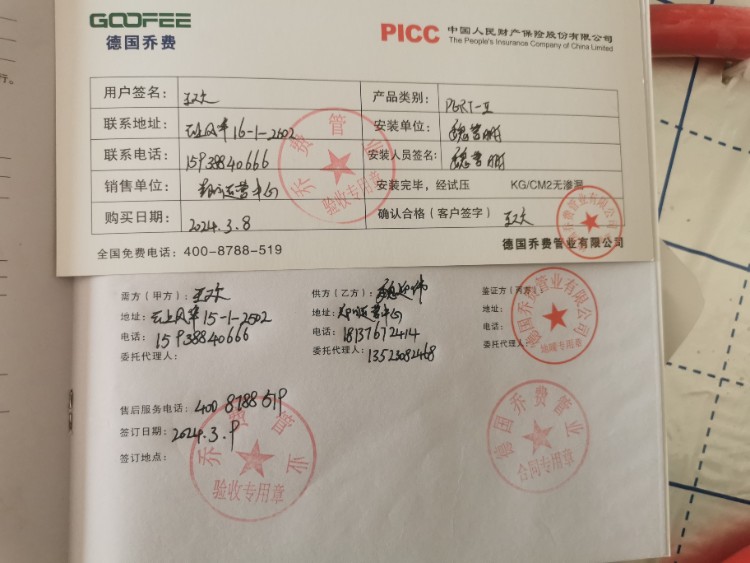 GOOFEE
德国乔费
PICC 中国人民财产保险股份有限公司
The People's Insurance Company of China Limited
行。
用户签名： 产品类别： PERT-II
联系地址： 云上风华16-1-2502 安装单位：
联系电话： 15938840666 安装人员签名：
销售单位： 运营中心 安装完毕，经试压 KG/CM2无渗漏
购买日期： 2024.3.8 确认合格（客户签字）
全国免费电话：400-8788-519 德国乔费管业有限公司
乔费管业
验收专用章
需方（甲方）： 供方（乙方）： 鉴证方（丙方）：
地址：云上风华15-1-2502 地址： 运营中心 地址：
电话：15938840666 电话：18137672414 电话：
委托代理人： 委托代理人：13523082468 委托代理人：
德国乔费管业有限公司
售后服务电话：400 8788 519
签订日期：2024.3.9
签订地点：
乔费管业
验收专用章
德国乔费管业
合同专用章